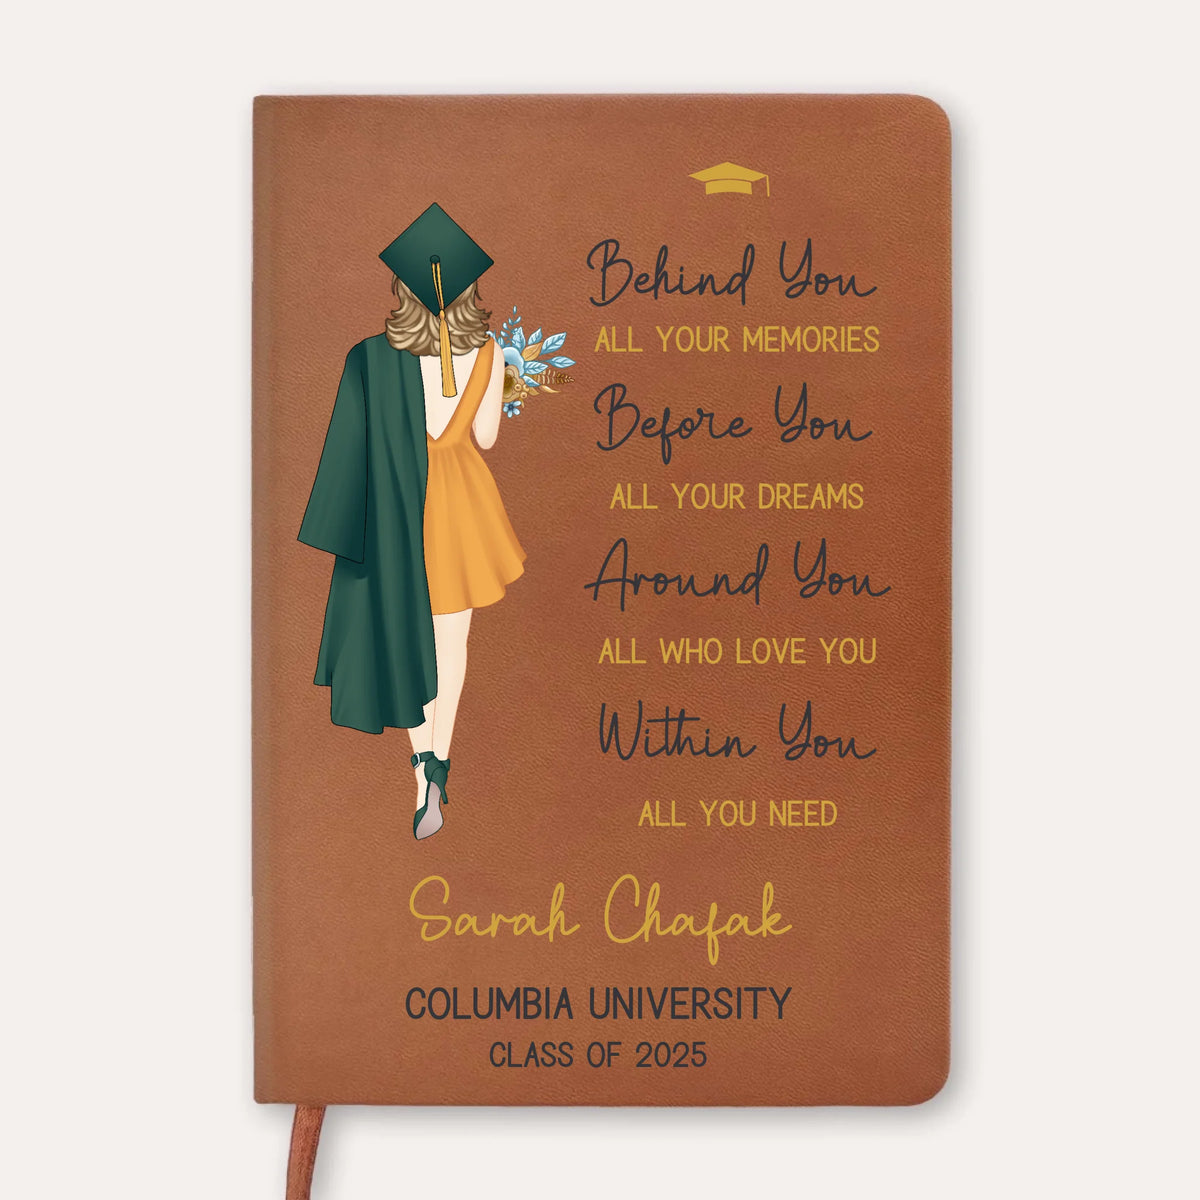 Behind You
ALL YOUR MEMORIES
Before You
ALL YOUR DREAMS
Around You
ALL WHO LOVE YOU
Within You
ALL YOU NEED
Sarah Chafak
COLUMBIA UNIVERSITY
CLASS OF 2025